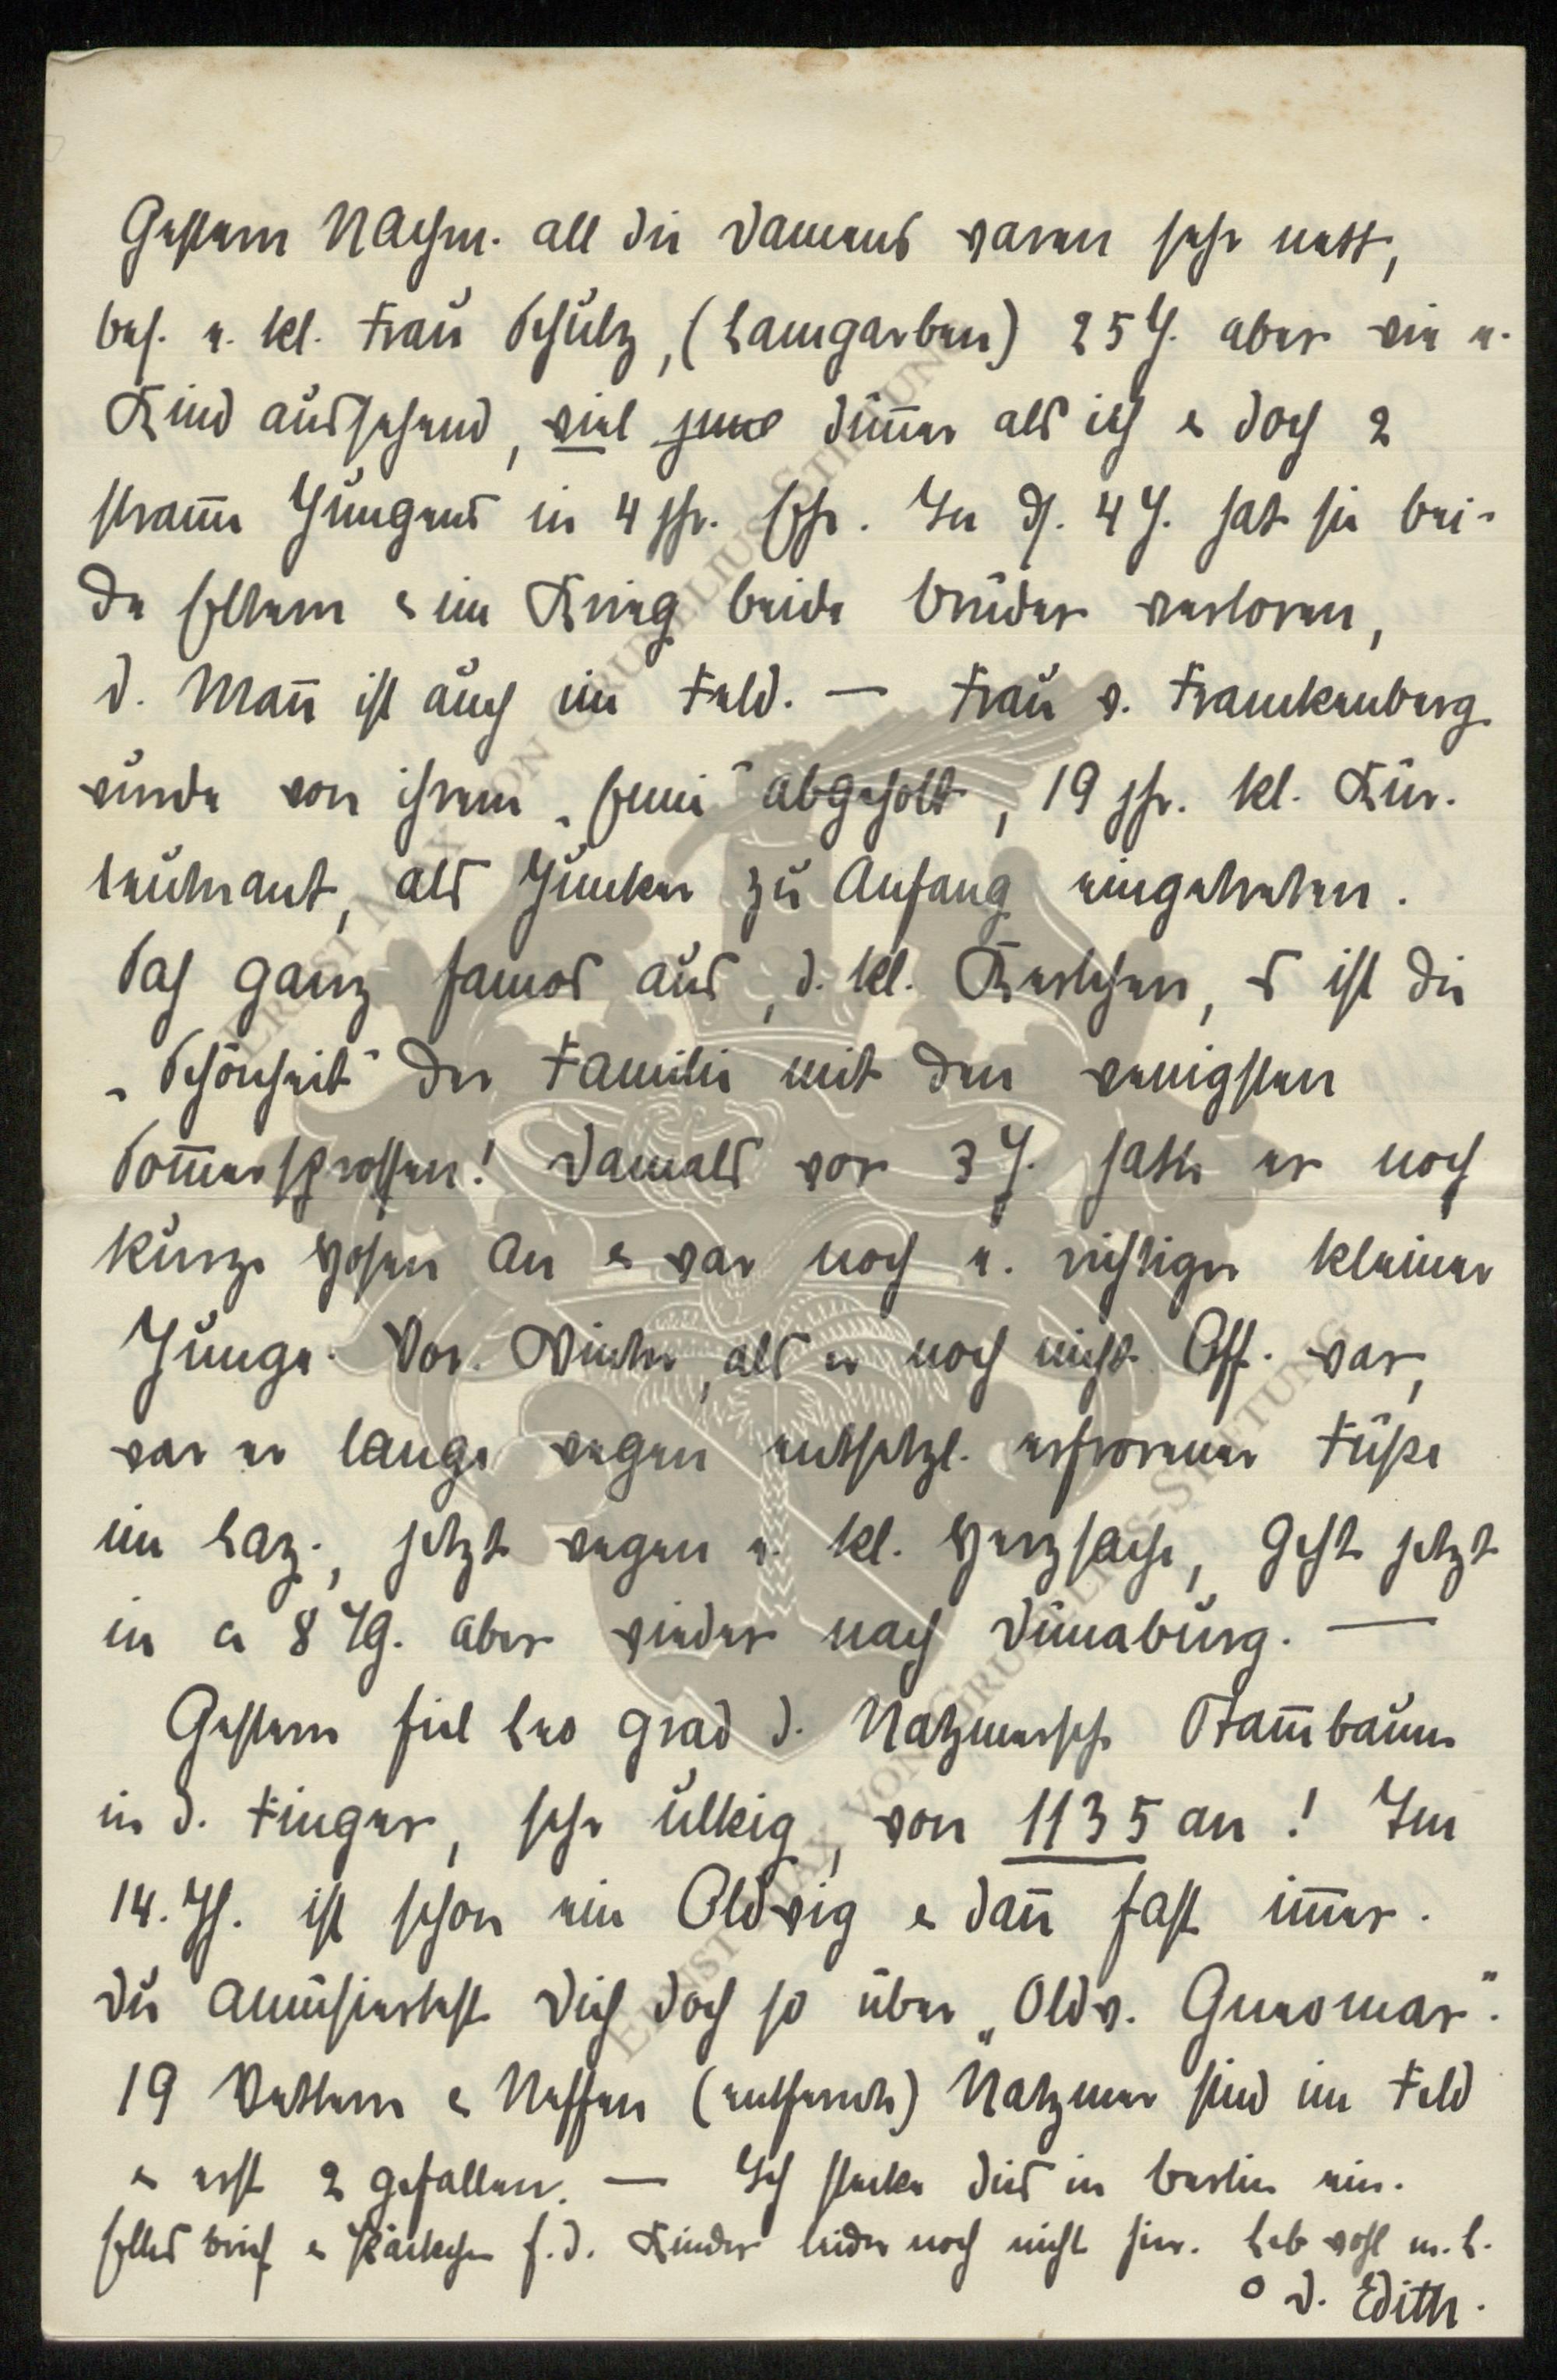 Gestern Nachm. all die Damens waren sehr nett,
bes. e. kl. Frau Schulz, (Lamgarben) 25 J. aber wie e.
Kind aussehend, viel dünner als ich & doch 2
stramme Jungens in 4 jhr. Ehe. In ds. 4 J. hat sie bei-
de Eltern & im Krieg beide Brüder verloren,
d. Mann ist auch im Feld. — Frau v. Frankenberg
wurde von ihrem „Emi" abgeholt, 19 jhr. kl. Kür.
leutnant, als Junker zu Anfang eingetreten.
Sah ganz famos aus, d. kl. Kerlchen, s ist die
„Schönheit" der Familie mit den wenigsten
Sommersprossen! Damals vor 3 J. hatte er noch
kurze Hosen an & war noch e. richtiger kleiner
Junge. Vor. Winter, als er noch nicht Off. war,
war er lange wegen entsetzl. erfrorener Füße
im Laz., jetzt wegen e. kl. Herzsache, geht jetzt
in ca 8 Tg. aber wieder nach Dünaburg. —
Gestern fiel Leo grad d. Natzmersche Stammbaum
in d. Finger, sehr ulkig, von 1135 an! Im
14. Jh. ist schon ein Oldwig & dann fast immer.
Du amüsiertest Dich doch so über „Oldw. Gneomar".
19 Vettern & Neffen (entfernte) Natzmer sind im Feld
& erst 2 gefallen. — Ich stecke dies in Berlin ein.
Ellas Brief & Päckchen f. d. Kinder leider noch nicht hier. Leb wohl m. L.
D. Edith.